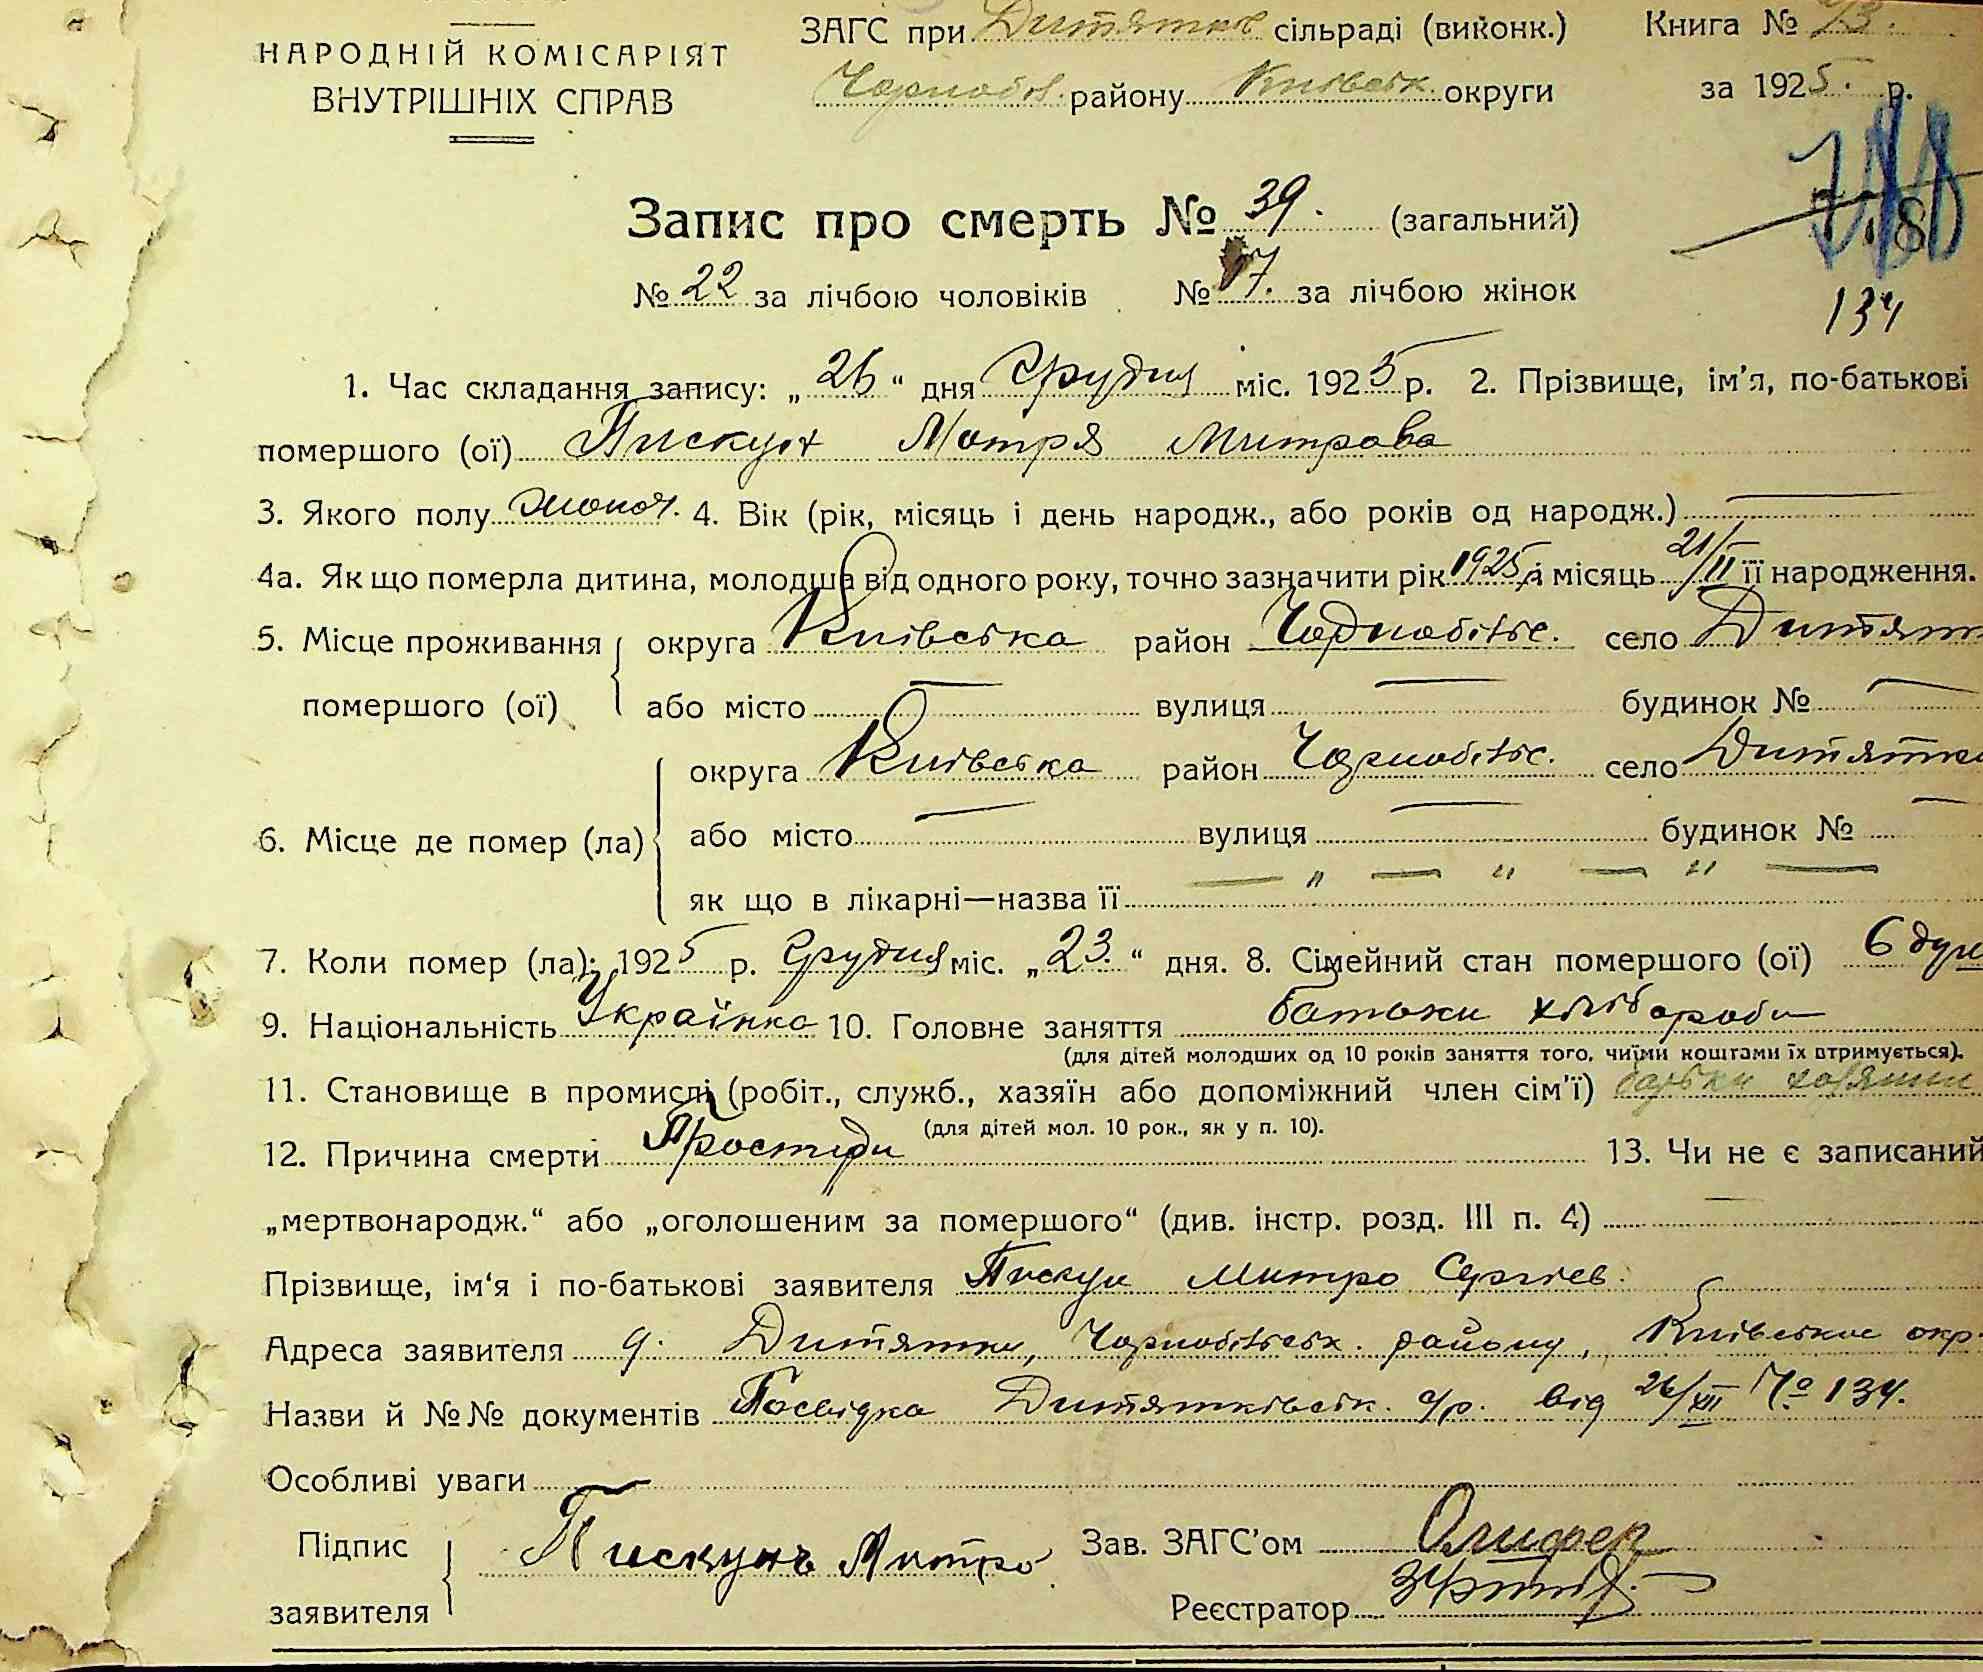 НАРОДНІЙ КОМІСАРІЯТ
ВНУТРІШНІХ СПРАВ
ЗАГС при Дитятків сільраді (виконк.) Книга №
Чорноб. району Київськ. округи за 1925 р.
Запис про смерть № 39. (загальний)
№ 22 за лічбою чоловіків № 17. за лічбою жінок
134
1. Час складання запису: „26“ дня Грудня міс. 1925 р. 2. Прізвище, ім'я, по-батькові
помершого (ої) Пискун Мотря Митрова
3. Якого полу жіноч. 4. Вік (рік, місяць і день народж., або років од народж.) —
4а. Як що померла дитина, молодша від одного року, точно зазначити рік 1925 і місяць 21/II її народження.
5. Місце проживання помершого (ої) округа Київська район Чорнобильс. село Дитятк
або місто — вулиця — будинок № —
6. Місце де помер (ла) округа Київська район Чорнобильс. село Дитятки
або місто — вулиця — будинок № —
як що в лікарні—назва її — „ — „ — „ —
7. Коли помер (ла): 1925 р. Грудня міс. „23.“ дня. 8. Сімейний стан помершого (ої) 6 душ
9. Національність Українка 10. Головне заняття батьки хлібороби
(для дітей молодших од 10 років заняття того, чиїми коштами їх втримується).
11. Становище в промислі (робіт., служб., хазяїн або допоміжний член сім'ї) батьки хазяини
(для дітей мол. 10 рок., як у п. 10).
12. Причина смерти Простуди 13. Чи не є записаний
„мертвонародж.“ або „оголошеним за помершого“ (див. інстр. розд. III п. 4) —
Прізвище, ім'я і по-батькові заявителя Пискун Митро Сергіев.
Адреса заявителя с. Дитятки, Чорнобильськ. району, Київськоі окр.
Назви й №№ документів Посвідка Дитятківськ. с/р. від 26/XII № 134.
Особливі уваги
Підпис заявителя Пискунъ Митро Зав. ЗАГС'ом Олифер
Реєстратор